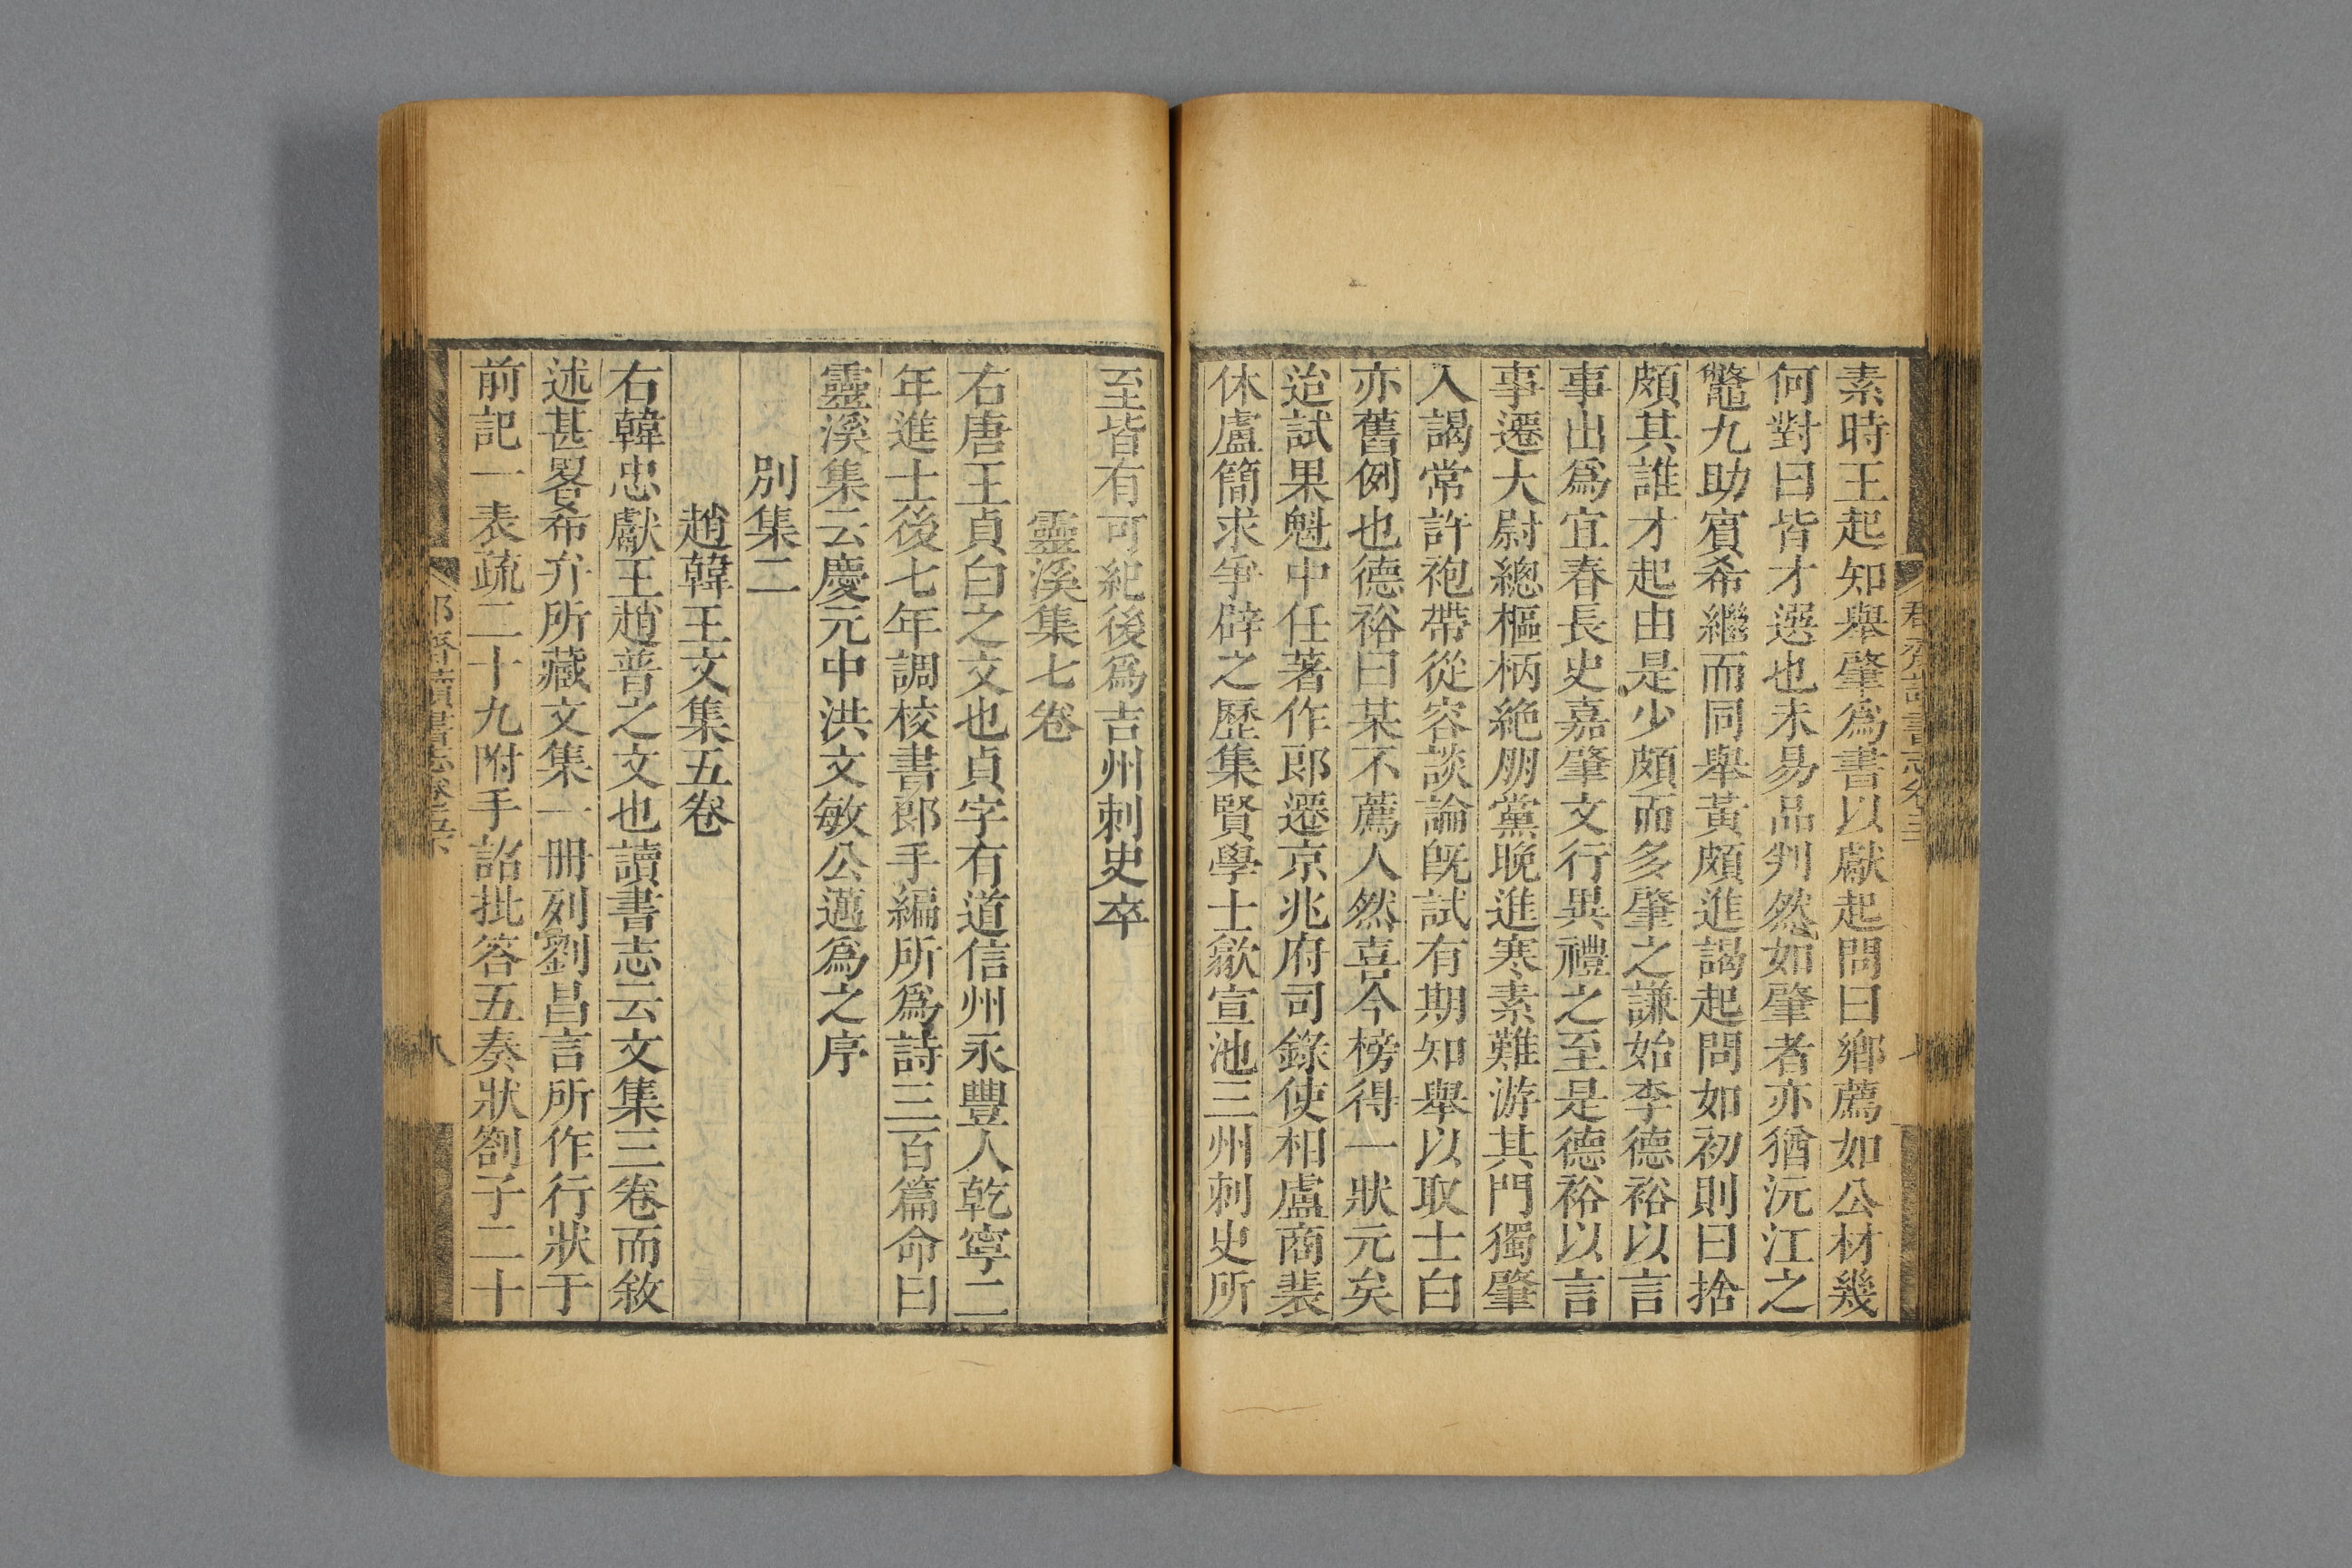 素時王起知舉肇爲書以獻起問曰鄉薦如公材幾
何對曰皆才選也未易品判然如肇者亦猶沅江之
鼈九助賓希繼而同舉黃頗進謁起問如初則曰捨
頗其誰才起由是少頗而多肇之謙始李德裕以言
事出爲宜春長史嘉肇文行異禮之至是德裕以言
事遷大尉總樞柄絶朋黨晚進寒素難游其門獨肇
入謁常許袍帶從容談論旣試有期知舉以取士白
亦舊例也德裕曰某不薦人然喜今榜得一狀元矣
迨試果魁中任著作郎遷京兆府司錄使相盧商裴
休盧簡求爭辟之歷集賢學士歙宣池三州刺史所
至皆有可紀後爲吉州刺史卒
靈溪集七卷
右唐王貞白之文也貞字有道信州永豐人乾寧二
年進士後七年調校書郎手編所爲詩三百篇命曰
靈溪集云慶元中洪文敏公邁爲之序
別集二
趙韓王文集五卷
右韓忠獻王趙普之文也讀書志云文集三卷而敘
述甚畧希弁所藏文集一冊列劉昌言所作行狀于
前記一表疏二十九附手詔批答五奏狀劄子二十